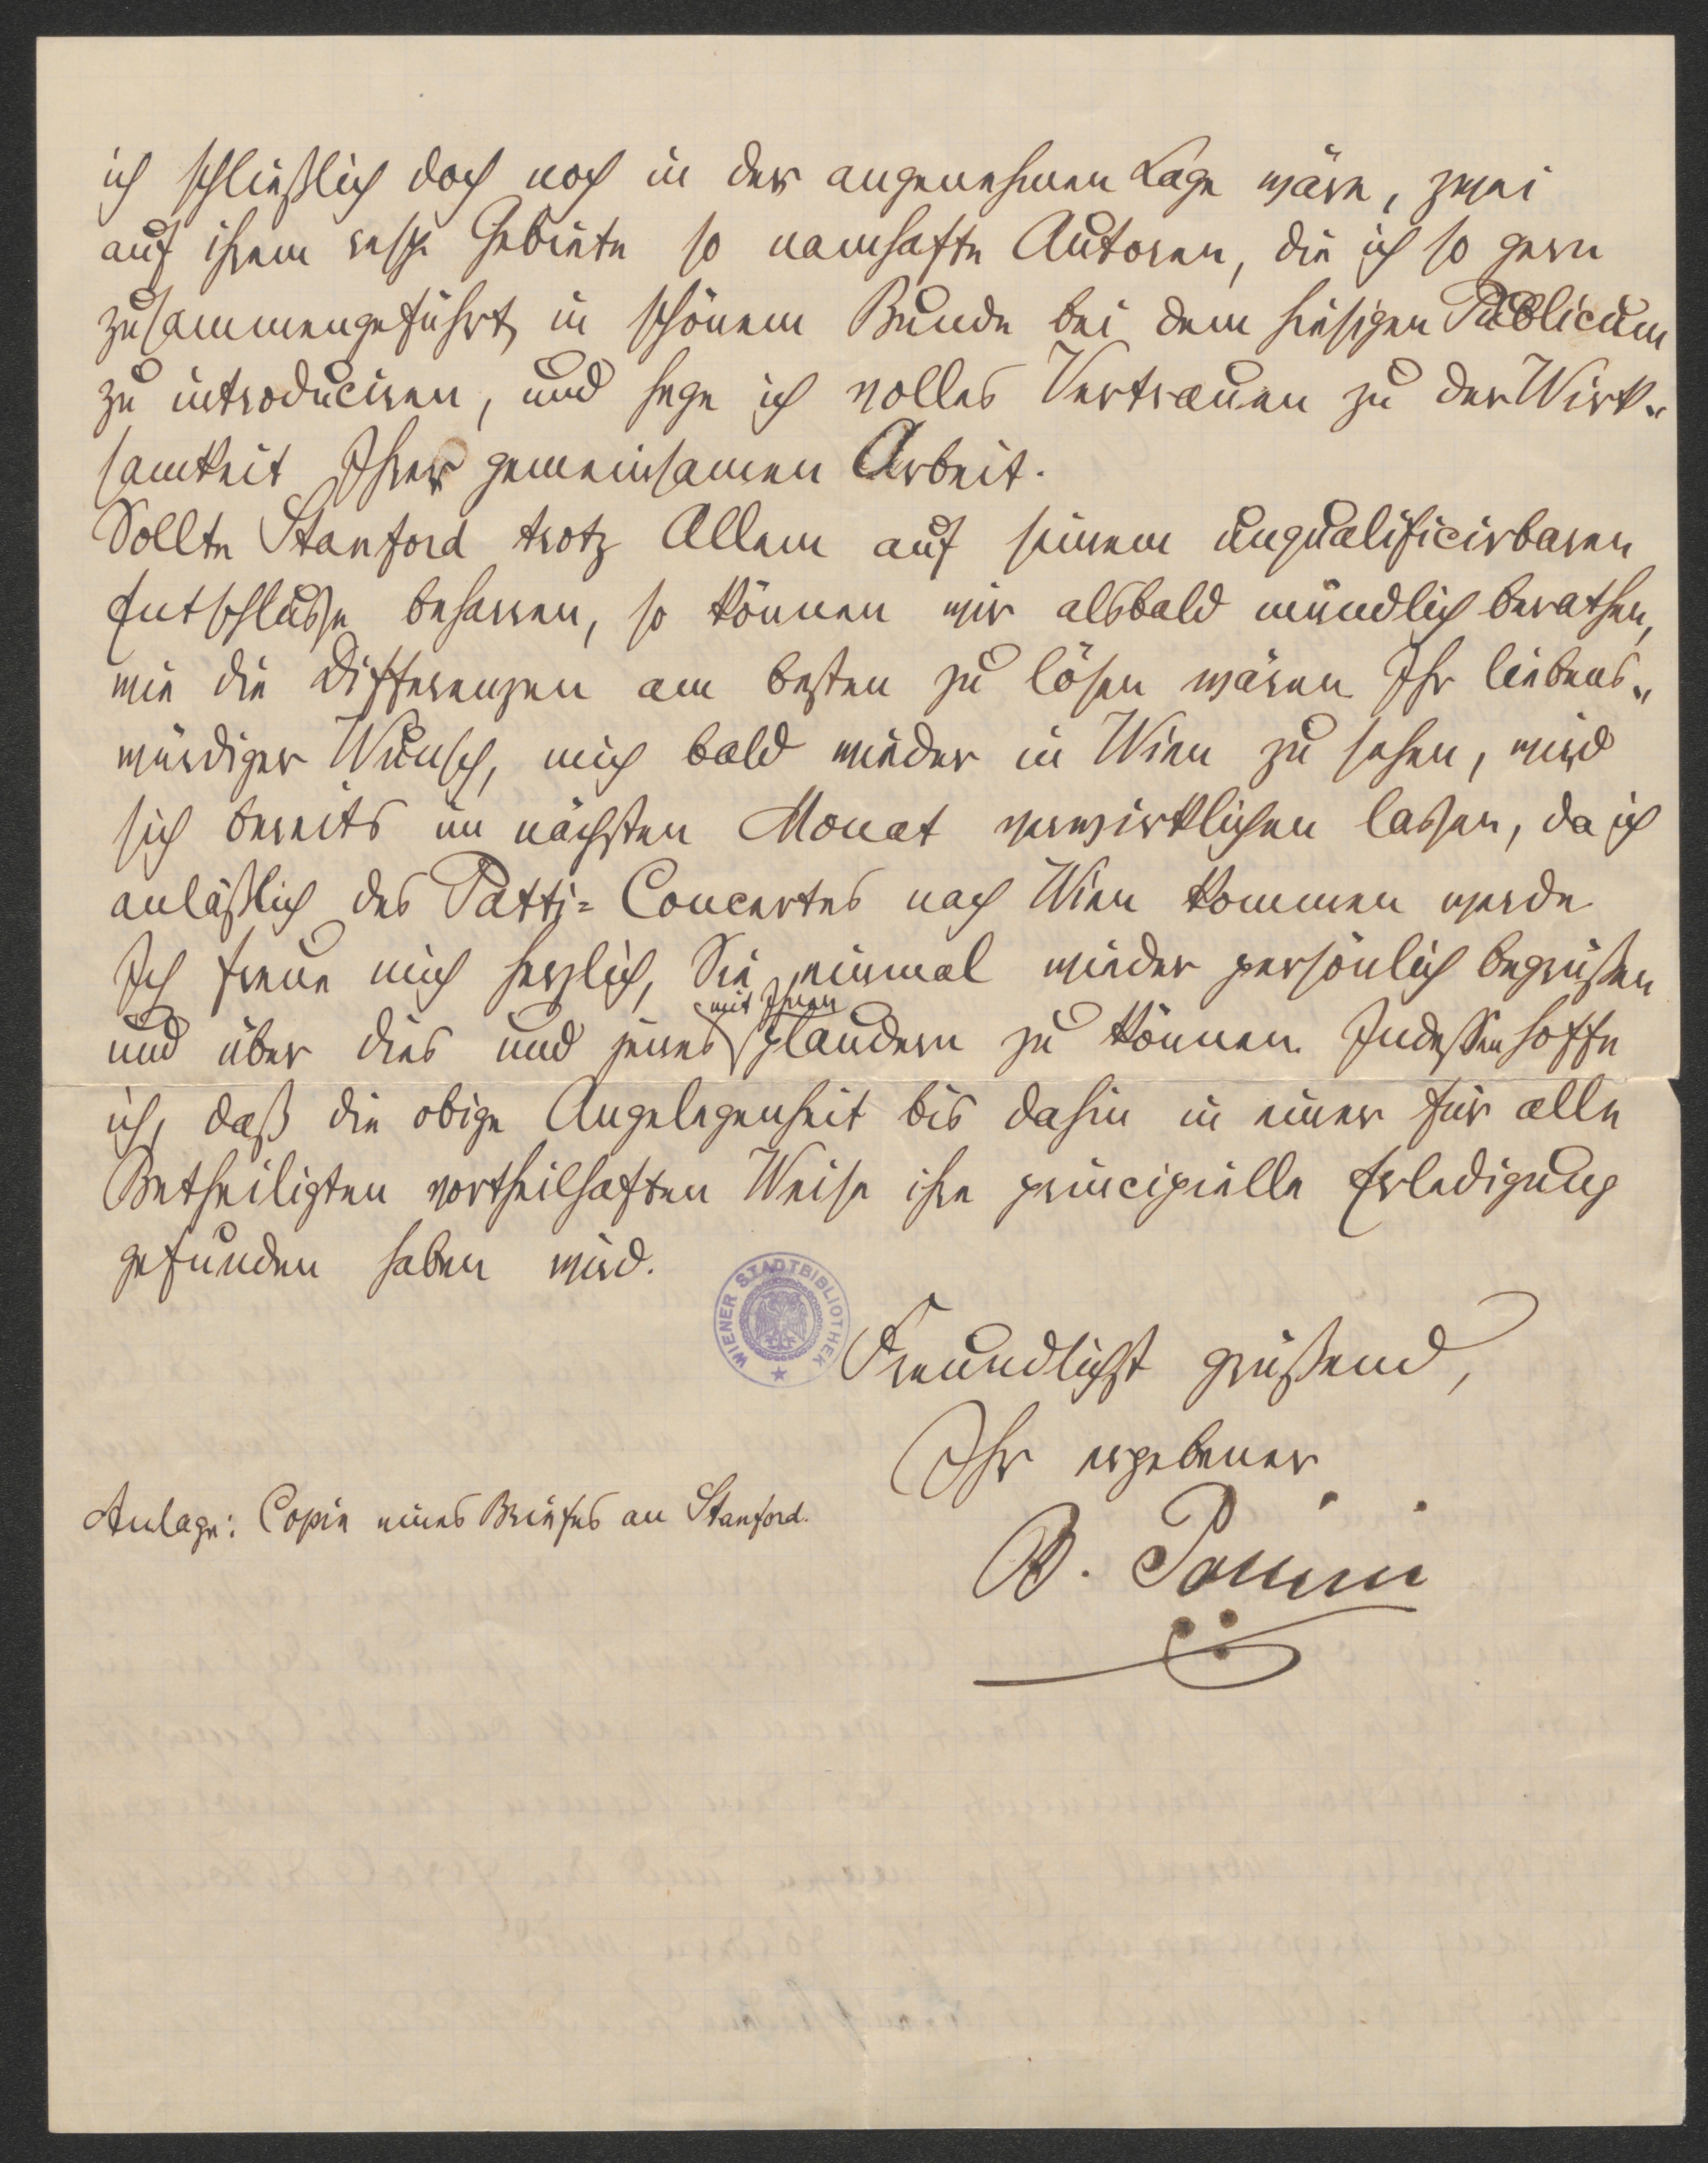 ich schließlich doch noch in der angenehmen Lage wäre, zwei
auf ihrem resp. Gebiete so namhafte Autoren, die ich so gern
zusammengeführt, in schönem Bunde bei dem hiesigen Publicum
zu introduciren, und hege ich volles Vertrauen zu der Wirk„
samkeit Ihrer gemeinsamen Arbeit.
Sollte Stanford trotz Allem auf seinem unqualificirbaren
Entschlusse beharren, so können wir alsbald mündlich berathen,
wie die Differenzen am besten zu lösen wären. Ihr liebens„
würdiger Wunsch, mich bald wieder in Wien zu sehen, wird
sich bereits im nächsten Monat verwirklichen lassen, da ich
anläßlich des Patti=Concertes nach Wien kommen werde.
Ich freue mich herzlich, Sie einmal wieder persönlich begrüßen
mit Ihnen
und über dies und jenes plaudern zu können. Indessen hoffe
ich, daß die obige Angelegenheit bis dahin in einer für alle
Betheiligten vortheilhaften Weise ihre principielle Erledigung
gefunden haben wird.
WIENER STADTBIBLIOTHEK
Freundlichst grüßend,
Ihr ergebener
Anlage: Copie eines Briefes an Stanford.
B. Pollini